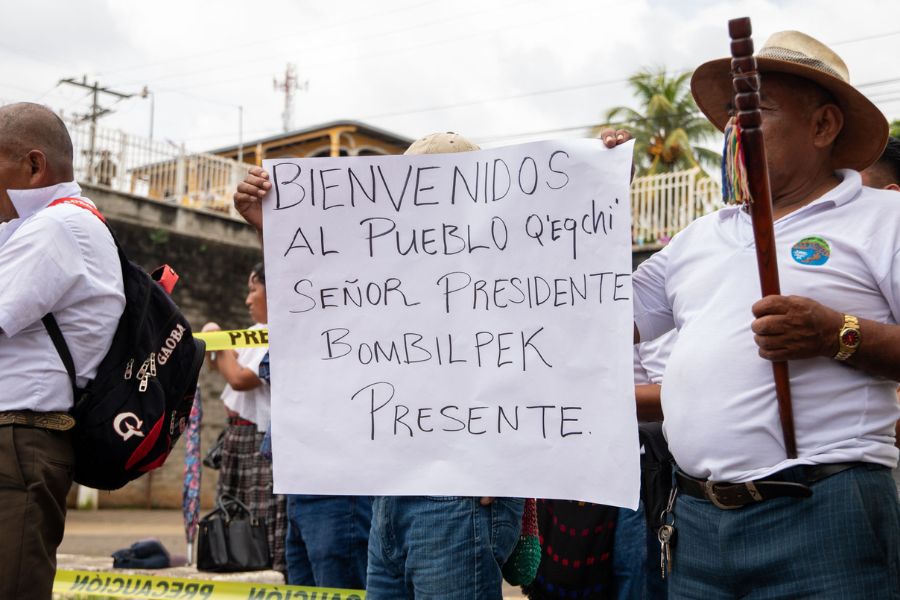 BIENVENIDOS
AL PUEBLO Q'EqchI'
SEÑOR PRESIDENTE
BOMBILPEK
PRESENTE.
GAOBA
PRE
PRECAUCIÓN